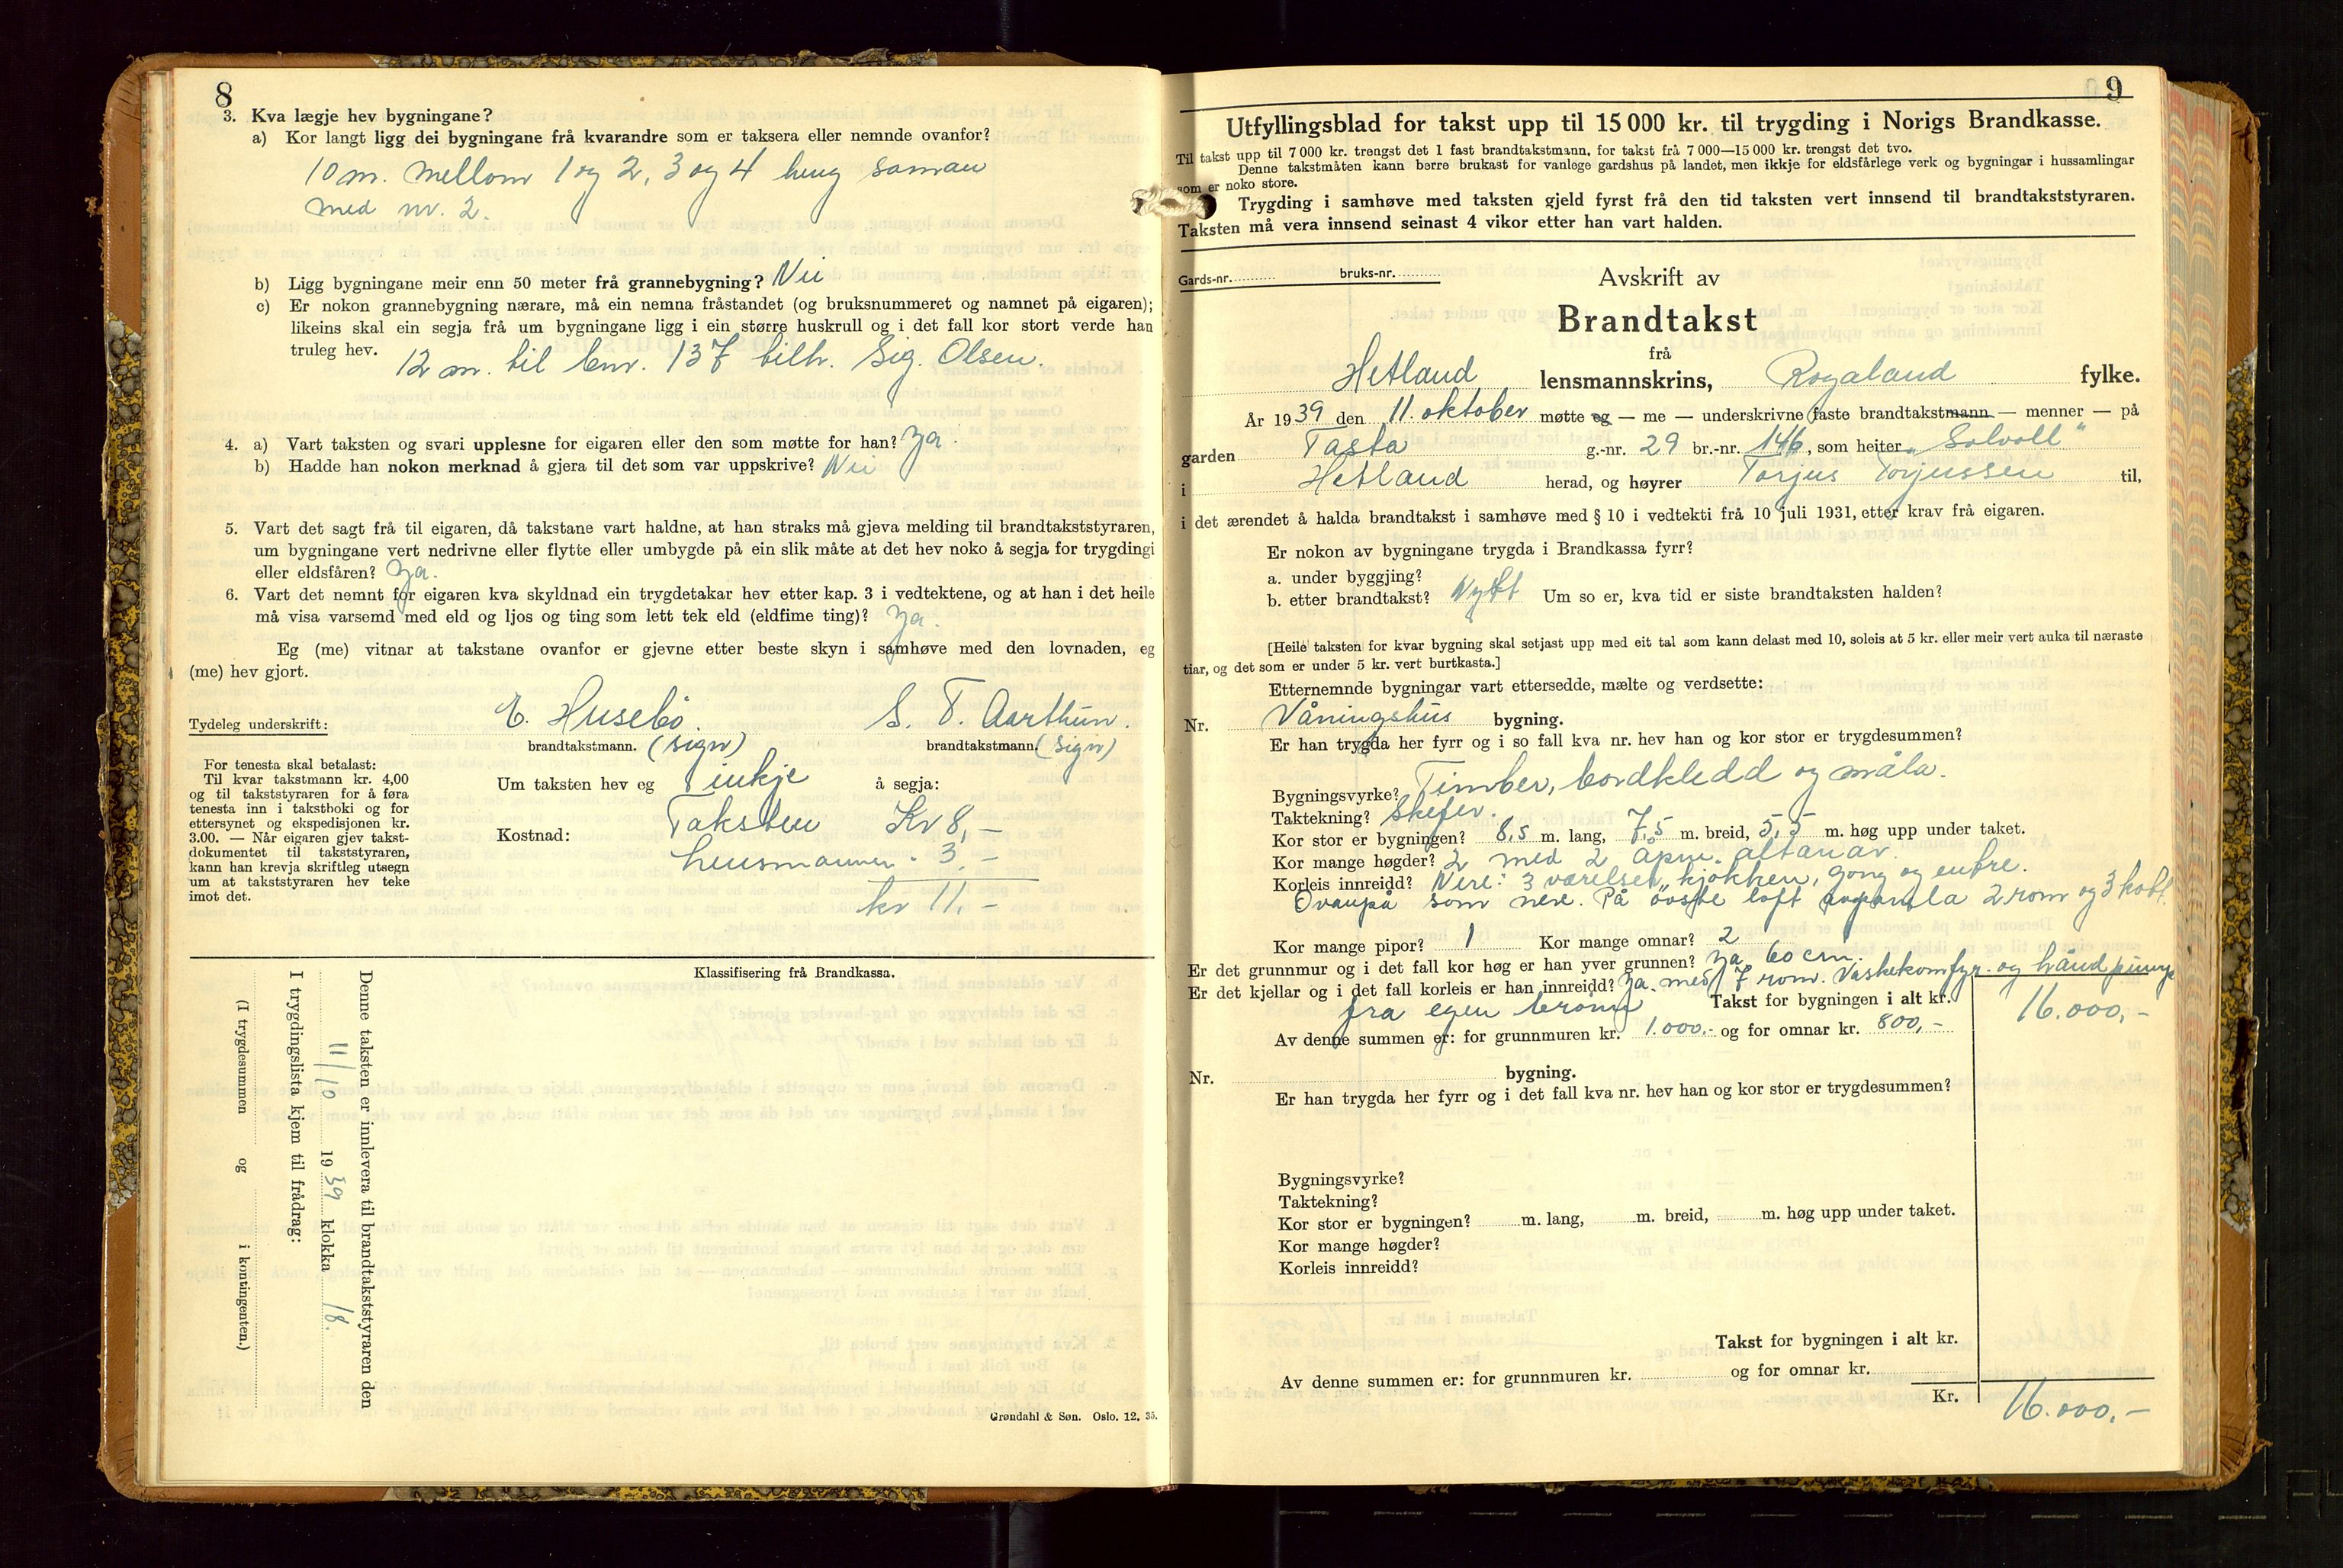 8
3. Kva lægje hev bygningane?
a) Kor langt ligg dei bygningane frå kvarandre som er taksera eller nemnde ovanfor?
10 m. mellom 1 og 2, 3 og 4 heng saman
med nr. 2.
b) Ligg bygningane meir enn 50 meter frå grannebygning? Nei
c) Er nokon grannebygning nærare, må ein nemna fråstandet (og bruksnummeret og namnet på eigaren);
likeins skal ein segja frå um bygningane ligg i ein større huskrull og i det fall kor stort verde han
truleg hev. 12 m. til bnr. 137 tilh. Sig. Olsen.
4. a) Vart taksten og svari upplesne for eigaren eller den som møtte for han? Ja.
b) Hadde han nokon merknad å gjera til det som var uppskrive? Nei
5. Vart det sagt frå til eigaren, då takstane vart haldne, at han straks må gjeva melding til brandtakststyraren,
um bygningane vert nedrivne eller flytte eller umbygde på ein slik måte at det hev noko å segja for trygdingi
eller eldsfåren? Ja.
6. Vart det nemnt for eigaren kva skyldnad ein trygdetakar hev etter kap. 3 i vedtektene, og at han i det heile
må visa varsemd med eld og ljos og ting som lett tek eld (eldfime ting)? Ja.
Eg (me) vitnar at takstane ovanfor er gjevne etter beste skyn i samhøve med den lovnaden, eg
(me) hev gjort.
Tydeleg underskrift: E. Husebö. S. T. Aarthun.
brandtakstmann. (sign) brandtakstmann. (sign)
For tenesta skal betalast:
Til kvar takstmann kr. 4,00
og til takststyraren for å føra
tenesta inn i takstboki og for
ettersynet og ekspedisjonen kr.
3.00. — Når eigaren gjev takst-
dokumentet til takststyraren,
kann han krevja skriftleg utsegn
um at takststyraren hev teke
imot det.
Um taksten hev eg inkje å segja:
Kostnad: Taksten Kr 8,-
Lensmannen - 3 -
kr 11.-
Klassifisering frå Brandkassa.
Denne taksten er innlevera til brandtakststyraren den
11/10 1939 klokka 18.
I trygdingslista kjem til frådrag:
(I trygdesummen og i kontingenten.)
Grøndahl & Søn. Oslo. 12. 35.
9
Utfyllingsblad for takst upp til 15 000 kr. til trygding i Norigs Brandkasse.
Til takst upp til 7 000 kr. trengst det 1 fast brandtakstmann, for takst frå 7 000—15 000 kr. trengst det tvo.
Denne takstmåten kann berre brukast for vanlege gardshus på landet, men ikkje for eldsfårlege verk og bygningar i hussamlingar
som er noko store.
Trygding i samhøve med taksten gjeld fyrst frå den tid taksten vert innsend til brandtakststyraren.
Taksten må vera innsend seinast 4 vikor etter han vart halden.
Gards-nr. bruks-nr.
Avskrift av
Brandtakst
frå
Hetland lensmannskrins, Rogaland fylke.
År 1939 den 11. oktober møtte eg — me — underskrivne faste brandtakstmann — menner — på
garden Tasta g.-nr. 29 br.-nr. 146, som heiter „Solvoll"
i Hetland herad, og høyrer Torjus Torjussen til,
i det ærendet å halda brandtakst i samhøve med § 10 i vedtekti frå 10 juli 1931, etter krav frå eigaren.
Er nokon av bygningane trygda i Brandkassa fyrr?
a. under byggjing?
b. etter brandtakst? Nytt Um so er, kva tid er siste brandtaksten halden?
[Heile taksten for kvar bygning skal setjast upp med eit tal som kann delast med 10, soleis at 5 kr. eller meir vert auka til næraste
tiar, og det som er under 5 kr. vert burtkasta.]
Etternemnde bygningar vart ettersedde, mælte og verdsette:
Nr. Våningshus bygning.
Er han trygda her fyrr og i so fall kva nr. hev han og kor stor er trygdesummen?
Bygningsvyrke? Timber, bordkledd og måla.
Taktekning? Skefer.
Kor stor er bygningen? 8,5 m. lang, 7,5 m. breid, 5,5 m. høg upp under taket.
Kor mange høgder? 2 med 2 åpne altanar.
Korleis innreidd? Nere: 3 værelser, kjökken, gong og entre.
Ovanpå som nere. På övste loft 2 rom og 3 kott.
Kor mange pipor? 1 Kor mange omnar? 2
Er det grunnmur og i det fall kor høg er han yver grunnen? Ja, 60 cm.
Er det kjellar og i det fall korleis er han innreidd? Ja. med 7 rom. Vaskekomfyr og håndpumpe
fra egen brönn Takst for bygningen i alt kr. 16.000,-
Av denne summen er: for grunnmuren kr. 1.000.- og for omnar kr. 800,-
Nr. bygning.
Er han trygda her fyrr og i det fall kva nr. hev han og kor stor er trygdesummen?
Bygningsvyrke?
Taktekning?
Kor stor er bygningen? m. lang, m. breid, m. høg upp under taket.
Kor mange høgder?
Korleis innreidd?
Takst for bygningen i alt kr.
Av denne summen er: for grunnmuren kr. og for omnar kr.
Kr. 16.000,-